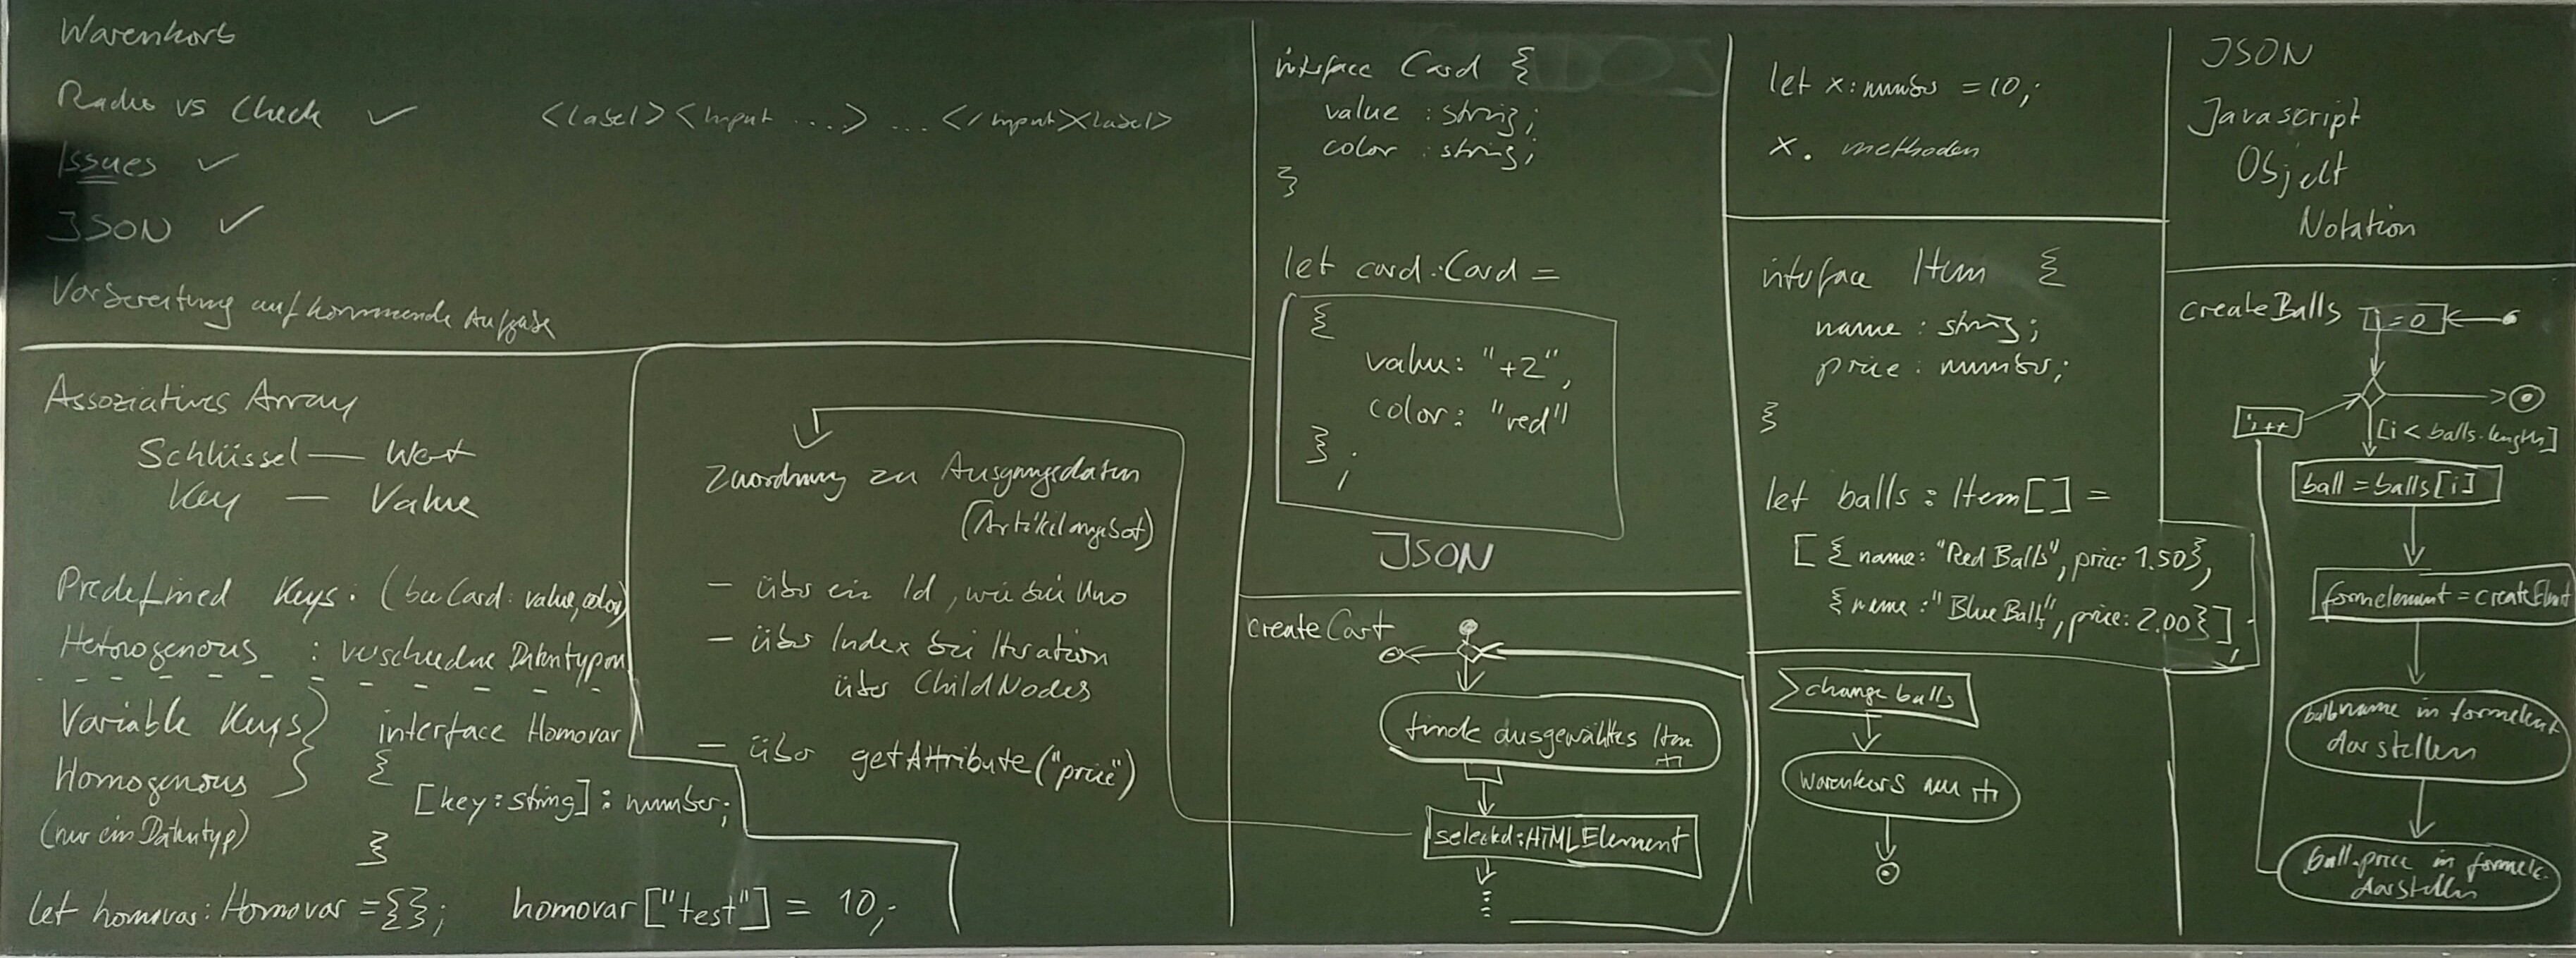 Warenkorb
Radio vs Check ✓
<label><input ...> ... </input><label>
Issues ✓
JSON ✓
Vorbereitung auf kommende Aufgabe
Assoziatives Array
Schlüssel — Wert
Key — Value
Predefined Keys: (bei Card: value, color)
Heterogenous : verschiedne Datentypen
Variable Keys
Homogenous
(nur ein Datentyp)
interface Homovar
{
[key: string]: number;
}
let homovar: Homovar = {}; homovar["test"] = 10;
Zuordnung zu Ausgangsdaten
(Artikelangebot)
- über ein Id, wie bei Uno
- über Index bei Iteration
über ChildNodes
- über getAttribute("price")
interface Card {
value : string;
color : string;
}
let card: Card =
{
value: "+2",
color: "red"
};
JSON
createCart
finde ausgewähltes Item
selected: HTMLElement
let x: number = 10;
x. methoden
interface Item {
name : string;
price : number;
}
let balls : Item[] =
[ { name: "Red Balls", price: 1.50},
{ name: "Blue Balls", price: 2.00} ];
change balls
Warenkorb neu
JSON
Javascript
Objekt
Notation
createBalls
i = 0
i++
[i < balls.length]
ball = balls[i]
formelement = createElmt
ball.name in formelemt
darstellen
ball.price in formele.
darstellen